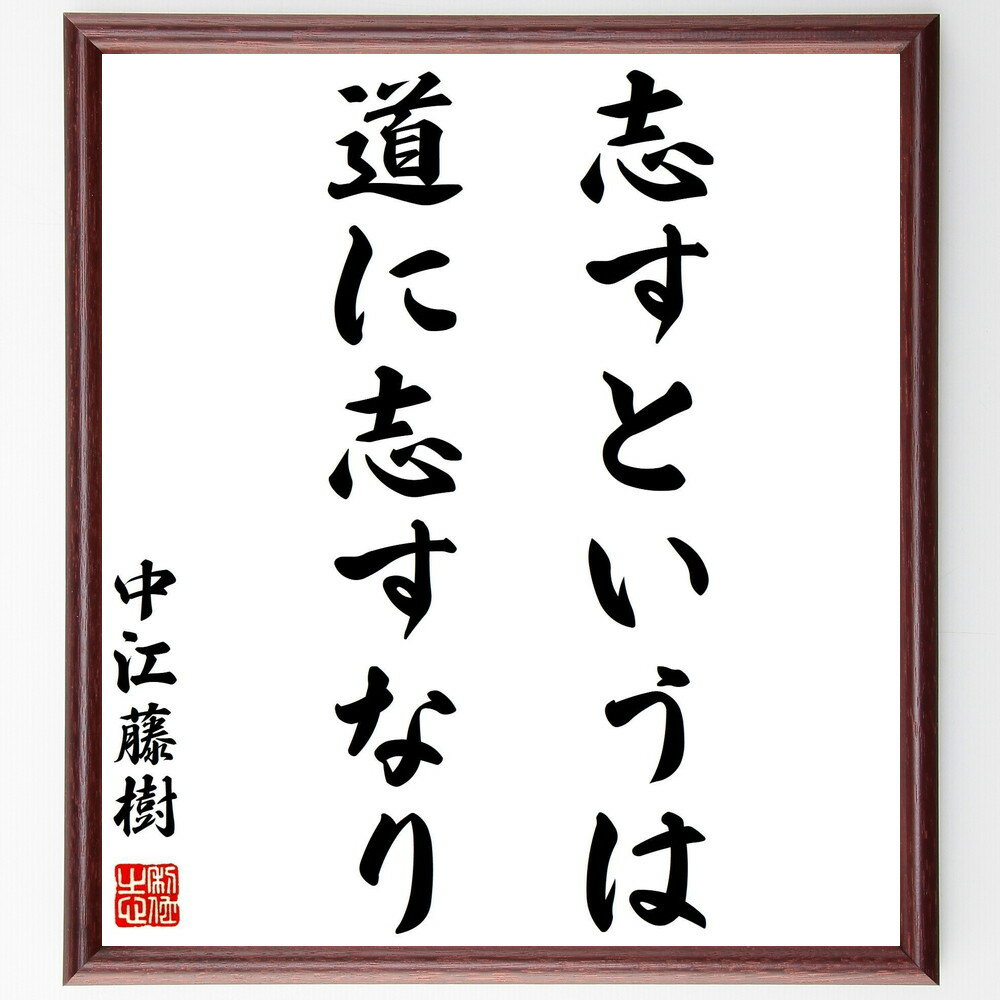 志すというは
道に志すなり
中江藤樹